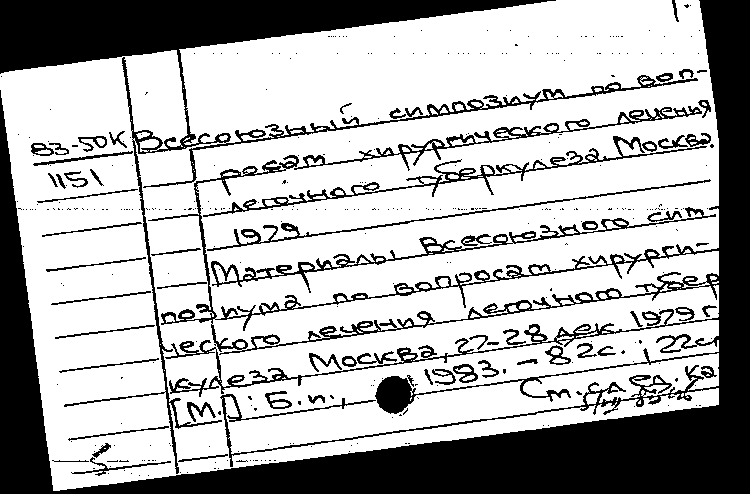 83-50К Всесоюзный симпозиум по воп-
1151 росам хирургического лечения
легочного туберкулеза. Москва.
1979.
Материалы Всесоюзного сим-
позиума по вопросам хирурги-
ческого лечения легочного тубер
кулеза, Москва, 27-28 дек. 1979 г
[М.]: Б.и., 1983. - 82с.; 22см
См. след. ка